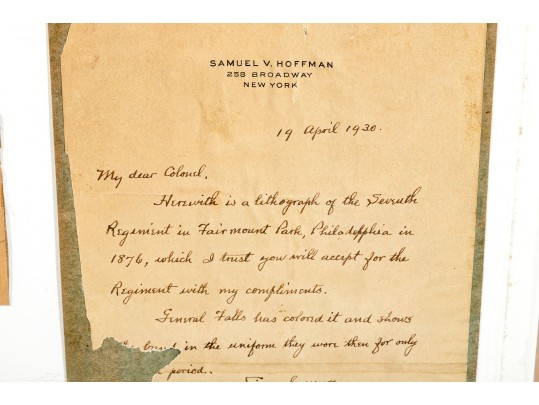 SAMUEL V. HOFFMAN
258 BROADWAY
NEW YORK
19 April 1930.
My dear Colonel,
Herewith is a lithograph of the Seventh
Regiment in Fairmount Park, Philadelphia in
1876, which I trust you will accept for the
Regiment with my compliments.
General Falls has colored it and shows
band in the uniform they wore then for only
period.